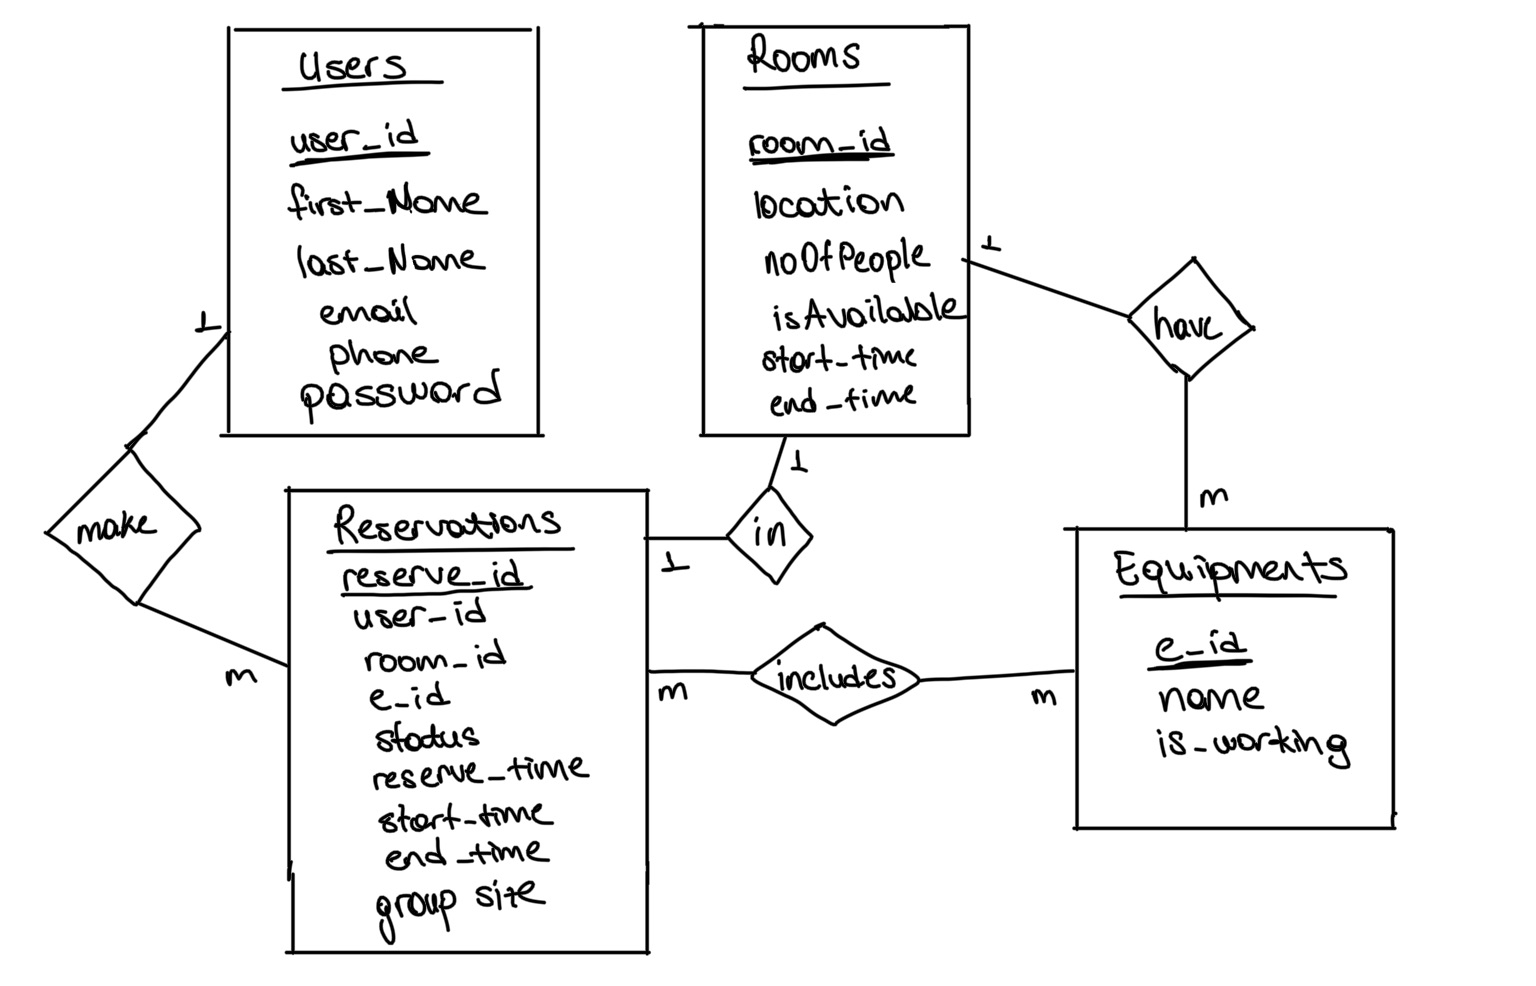 Users
user_id
first_Name
last_Name
email
phone
password
1
make
m
Rooms
room_id
location
noOfPeople
isAvailable
start_time
end_time
1
have
m
1
in
1
Reservations
reserve_id
user_id
room_id
e_id
status
reserve_time
start_time
end_time
group size
m
includes
m
Equipments
e_id
name
is_working